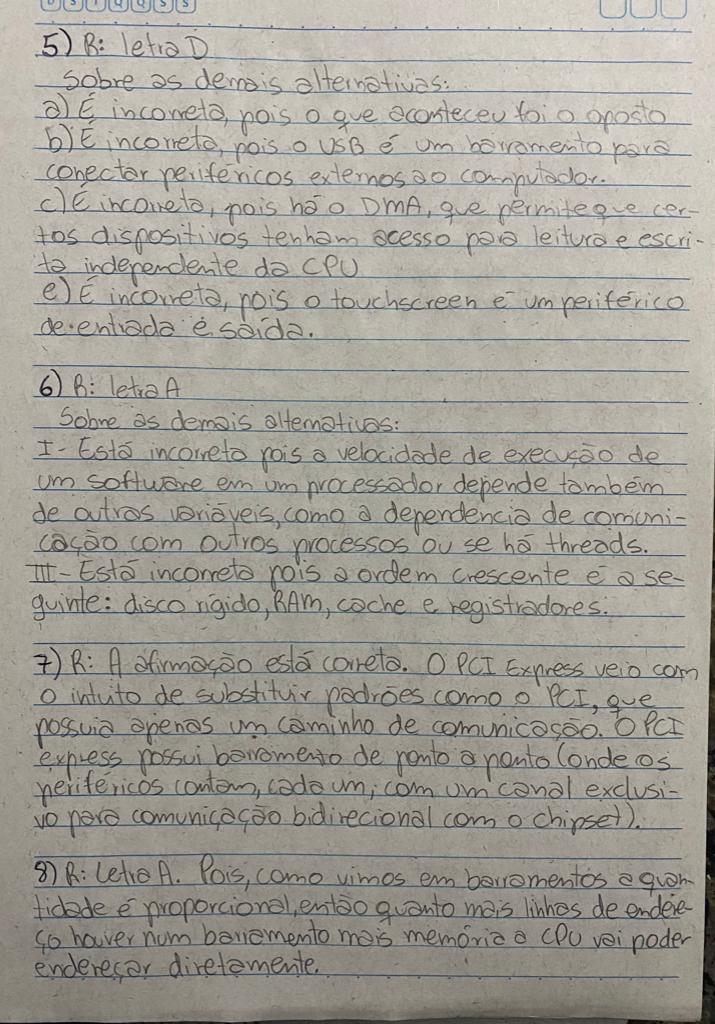 D S T Q Q S S
5) R: letra D
Sobre as demais alternativas:
a) É incorreta, pois o que aconteceu foi o oposto
b) É incorreta, pois o USB é um barramento para
conectar periféricos externos ao computador.
c) É incorreta, pois há o DMA, que permite que cer-
tos dispositivos tenham acesso para leitura e escri-
ta independente da CPU
e) É incorreta, pois o touchscreen é um periférico
de entrada e saída.
6) R: letra A
Sobre as demais alternativas:
I - Está incorreta pois a velocidade de execução de
um software em um processador depende também
de outras variáveis, como a dependência de comuni-
cação com outros processos ou se há threads.
III - Está incorreta pois a ordem crescente é a se-
guinte: disco rígido, RAM, cache e registradores.
7) R: A afirmação está correta. O PCI Express veio com
o intuito de substituir padrões como o PCI, que
possuia apenas um caminho de comunicação. O PCI
express possui barramento de ponto a ponto (onde os
periféricos contam, cada um, com um canal exclusi-
vo para comunicação bidirecional com o chipset).
8) R: Letra A. Pois, como vimos em barramentos a quan-
tidade é proporcional, então quanto mais linhas de endere-
ço houver num barramento mais memória a CPU vai poder
endereçar diretamente.